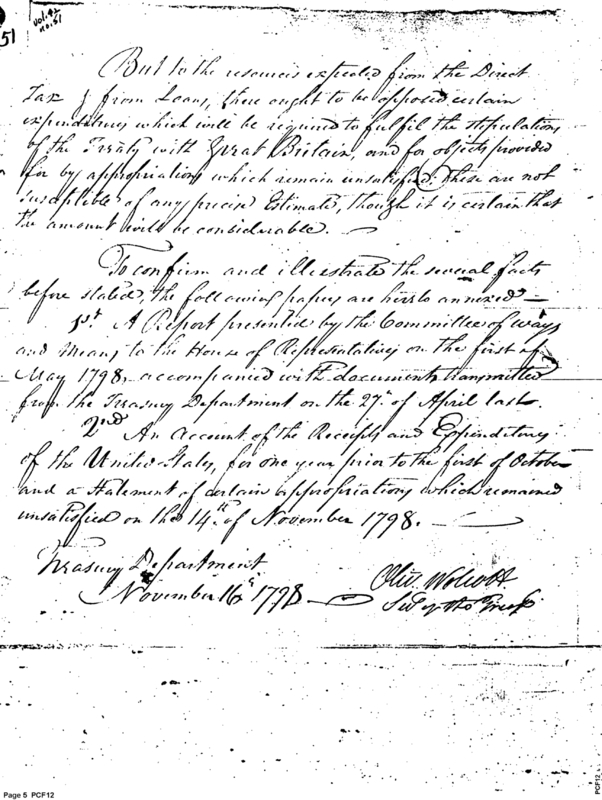 51
Vol. 42
no. 51
But to the resources expected from the Direct
Tax & from Loans, there ought to be opposed certain
expenditures which will be required to fulfil the stipulations
of the Treaty with Great Britain, and for objects provided
for by appropriations which remain unsatisfied. These are not
susceptible of any precise Estimate, though it is certain that
the amount will be considerable. —
To confirm and illustrate the several facts
before stated, the following papers are hereto annexed —
1st. A Report presented by the Committee of ways
and Means, to the House of Representatives on the first of
May 1798, accompanied with documents transmitted
from the Treasury Department on the 27th. of April last.
2nd An account of the Receipts and Expenditures
of the United States, for one year prior to the first of October
and a Statement of certain appropriations which remained
unsatisfied on the 14th. of November 1798. —
Treasury Department
November 16th 1798 —
Oliv Wolcott
Secy of the Treasy
Page 5 PCF12
PCF12